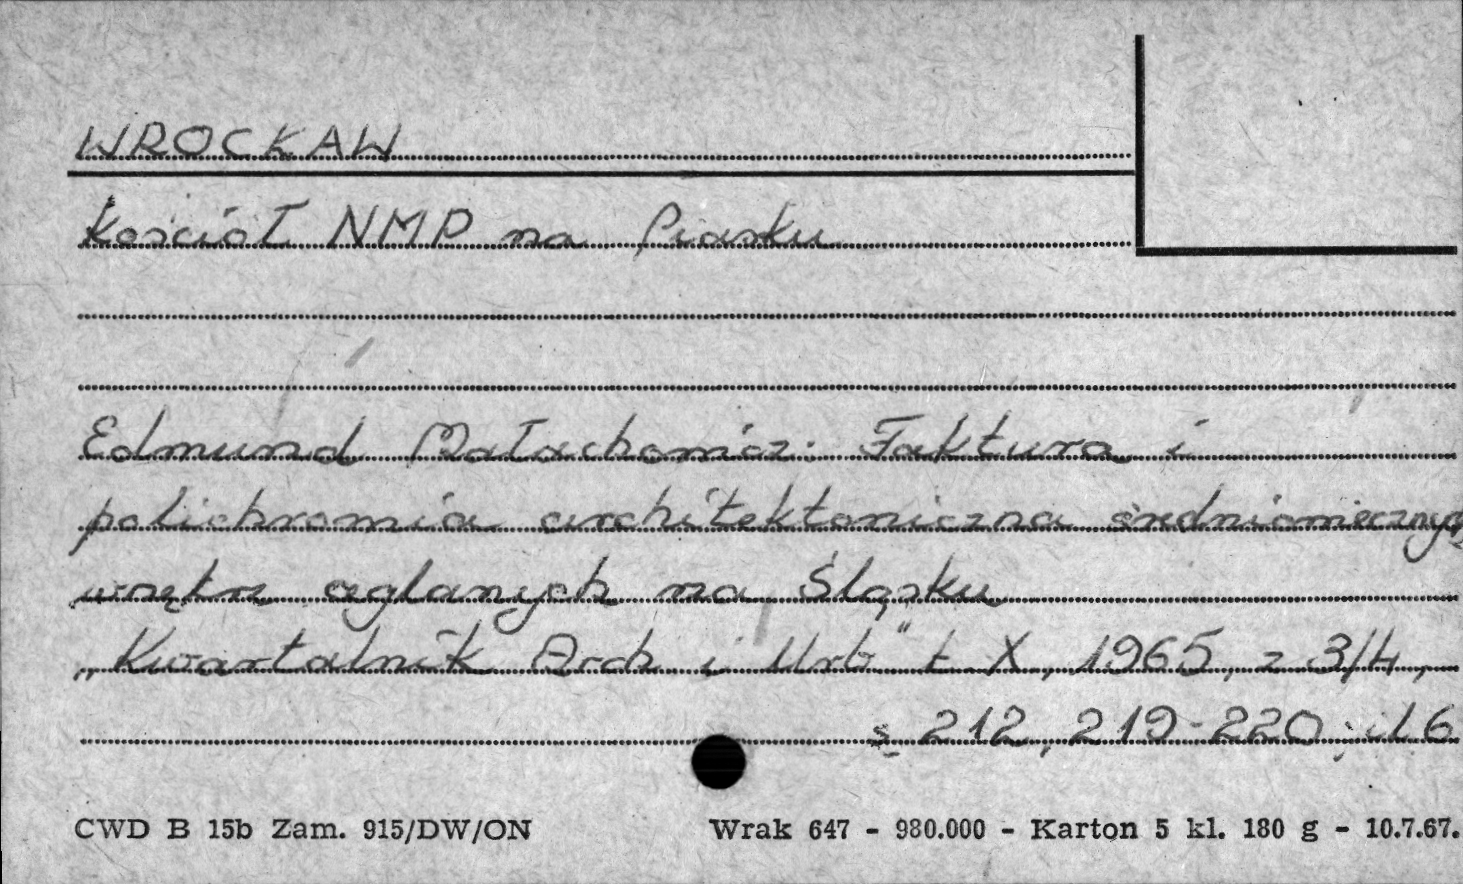 WROCŁAW
Kościół NMP na Piasku
Edmund Małachowicz: Faktura i
polichromia architektoniczna średniowiecznych
wnętrz ceglanych na Śląsku
„Kwartalnik Arch i Urb" t X, 1965, z 3/4,
s. 212, 219-220; il 6
CWD B 15b Zam. 915/DW/ON Wrak 647 - 980.000 - Karton 5 kl. 180 g - 10.7.67.